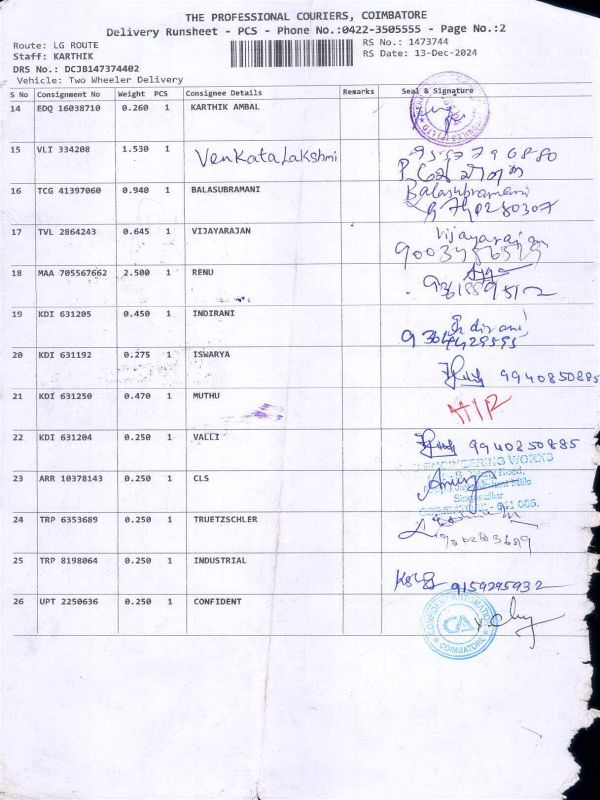 THE PROFESSIONAL COURIERS, COIMBATORE
Delivery Runsheet - PCS - Phone No.:0422-3505555 - Page No.:2
Route: LG ROUTE
RS No.: 1473744
Staff: KARTHIK
RS Date: 13-Dec-2024
DRS No.: DCJB147374402
Vehicle: Two Wheeler Delivery
S No Consignment No Weight PCS Consignee Details Remarks Seal & Signature
14 EDQ 16038710 0.260 1 KARTHIK AMBAL
15 VLI 334208 1.530 1 Venkatalakshmi
16 TCG 41397060 0.940 1 BALASUBRAMANI Balasubramani
17 TVL 2864243 0.645 1 VIJAYARAJAN Vijayarajan
18 MAA 705567662 2.500 1 RENU
19 KDI 631205 0.450 1 INDIRANI
20 KDI 631192 0.275 1 ISWARYA 9940850885
21 KDI 631250 0.470 1 MUTHU
22 KDI 631204 0.250 1 VALLI 9940250885
23 ARR 10378143 0.250 1 CLS
ENGINEERING WORKS
24 TRP 6353689 0.250 1 TRUETZSCHLER
25 TRP 8198064 0.250 1 INDUSTRIAL 9159295932
26 UPT 2250636 0.250 1 CONFIDENT
CA
COIMBATORE